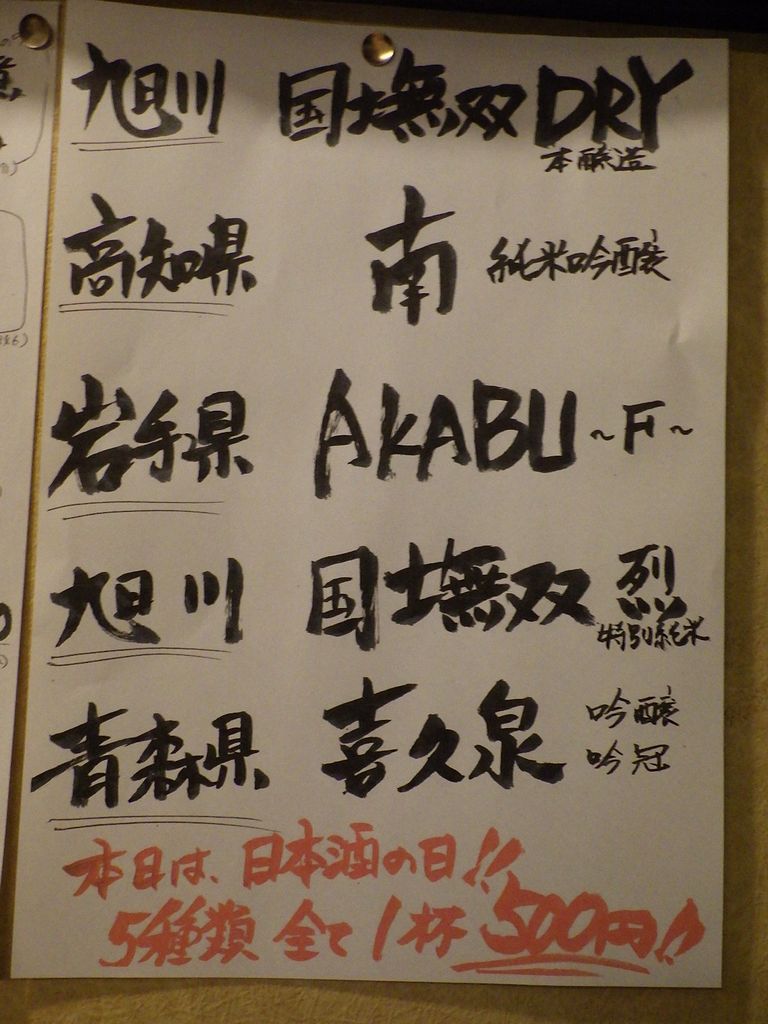 旭川 国士無双 DRY
本醸造
高知県 南 純米吟醸
岩手県 AKABU ~F~
旭川 国士無双 烈
特別純米
青森県 喜久泉 吟醸
吟冠
本日は、日本酒の日!!
5種類 全て1杯 500円!!